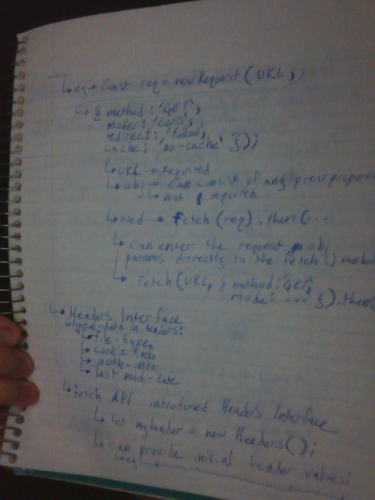 ↳ eg → const req = new Request(URL,
↳ { method: 'GET',
mode: 'cors',
redirect: 'follow',
cache: 'no-cache' });
↳ URL → required
↳ obj → can consist of any prev properties
↳ not required
↳ used → fetch(req).then(...
↳ can enter the request obj
params directly to the fetch() method
↳ fetch(URL, { method: 'GET',
mode: --- }).then(
↳ Headers Interface
↳ typical data in headers:
↳ file-type,
↳ cookie info
↳ auth-info
↳ last mod-date
↳ fetch API introduced Headers Interface
↳ let myHeader = new Headers();
↳ can provide initial header values: